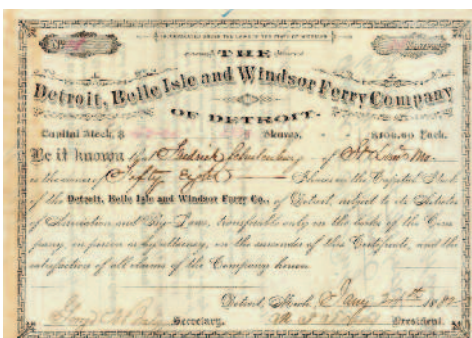 INCORPORATED UNDER THE LAWS OF THE STATE OF MICHIGAN
No. Shares
THE
Detroit, Belle Isle and Windsor Ferry Company
OF DETROIT.
Capital Stock, $ Shares, $100.00 Each.
Be it known that of St Louis Mo.
is the owner of Fifty Eight Shares in the Capital Stock
of the Detroit, Belle Isle and Windsor Ferry Co., of Detroit, subject to its Articles
of Association and By-Laws, transferable only on the books of the Com
pany, in person or by attorney, on the surrender of this Certificate, and the
satisfaction of all claims of the Company hereon.
Detroit, Mich. 188
Secretary. President.